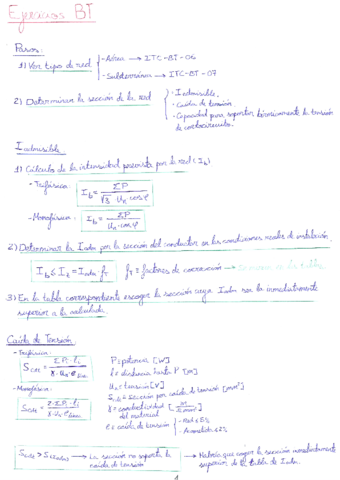 Ejercicios BT
Pasos:
1) Ver tipos de red
- Aérea → ITC-BT-06
- Subterránea → ITC-BT-07
2) Determinar la sección de la red
- I admisible.
- Caída de tensión.
- Capacidad para soportar térmicamente la tensión de cortocircuitos.
I admisible
1) Cálculo de la intensidad prevista por la red (I_b)
- Trifásica: I_b = ΣP / (√3 · U_n · cos φ)
- Monofásica: I_b = ΣP / (U_n · cos φ)
2) Determinar la I_adm por la sección del conductor en las condiciones reales de instalación
I_b ≤ I_z = I_adm · f_T
f_T = factores de corrección →
3) En la tabla correspondiente escoger la sección cuya I_adm sea la inmediatamente
superior a la calculada.
Caída de Tensión
- Trifásica:
S_cdt = ΣP_i · l_i / (γ · U_n · e_lím)
- Monofásica:
S_cdt = 2 · ΣP_i · l_i / (γ · U_n · e_lím)
P = potencia [W]
l = distancia hasta P [m]
U_n = tensión [V]
S_cdt = Sección por caída de tensión [mm²]
γ = conductividad del material [m / Ω mm²]
e = caída de tensión
- Red ≤ 5%
- Acometida ≤ 2%
S_cdt > S (I adm) → La sección no soporta la caída de tensión → Habría que coger la sección inmediatamente superior de la tabla de I_adm.
1